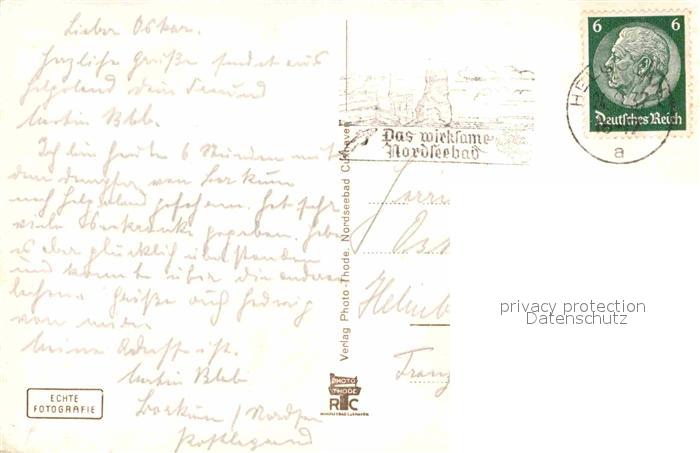 Lieber Oskar.
Herzliche Grüße sendet aus
Helgoland Dein Freund
Martin
Ich bin heute 6 Stunden mit
dem Dampfer von Borkum
nach Helgoland gefahren. Hat sehr
viele Seekranke gegeben. Habe
es aber glücklich überstanden
und konnte über die andren
lachen. Grüße auch Hedwig
von mir.
Meine Adresse ist.
Martin
Borkum / Nordsee
Postlagernd
ECHTE
FOTOGRAFIE
Verlag Photo-Thode, Nordseebad Cuxhaven
PHOTO
THODE
R C
NORDSEEBAD CUXHAVEN
Das wirksame
Nordseebad
6 6
Deutsches Reich
HEL
a
Herrn
Helm
Franz
privacy protection
Datenschutz